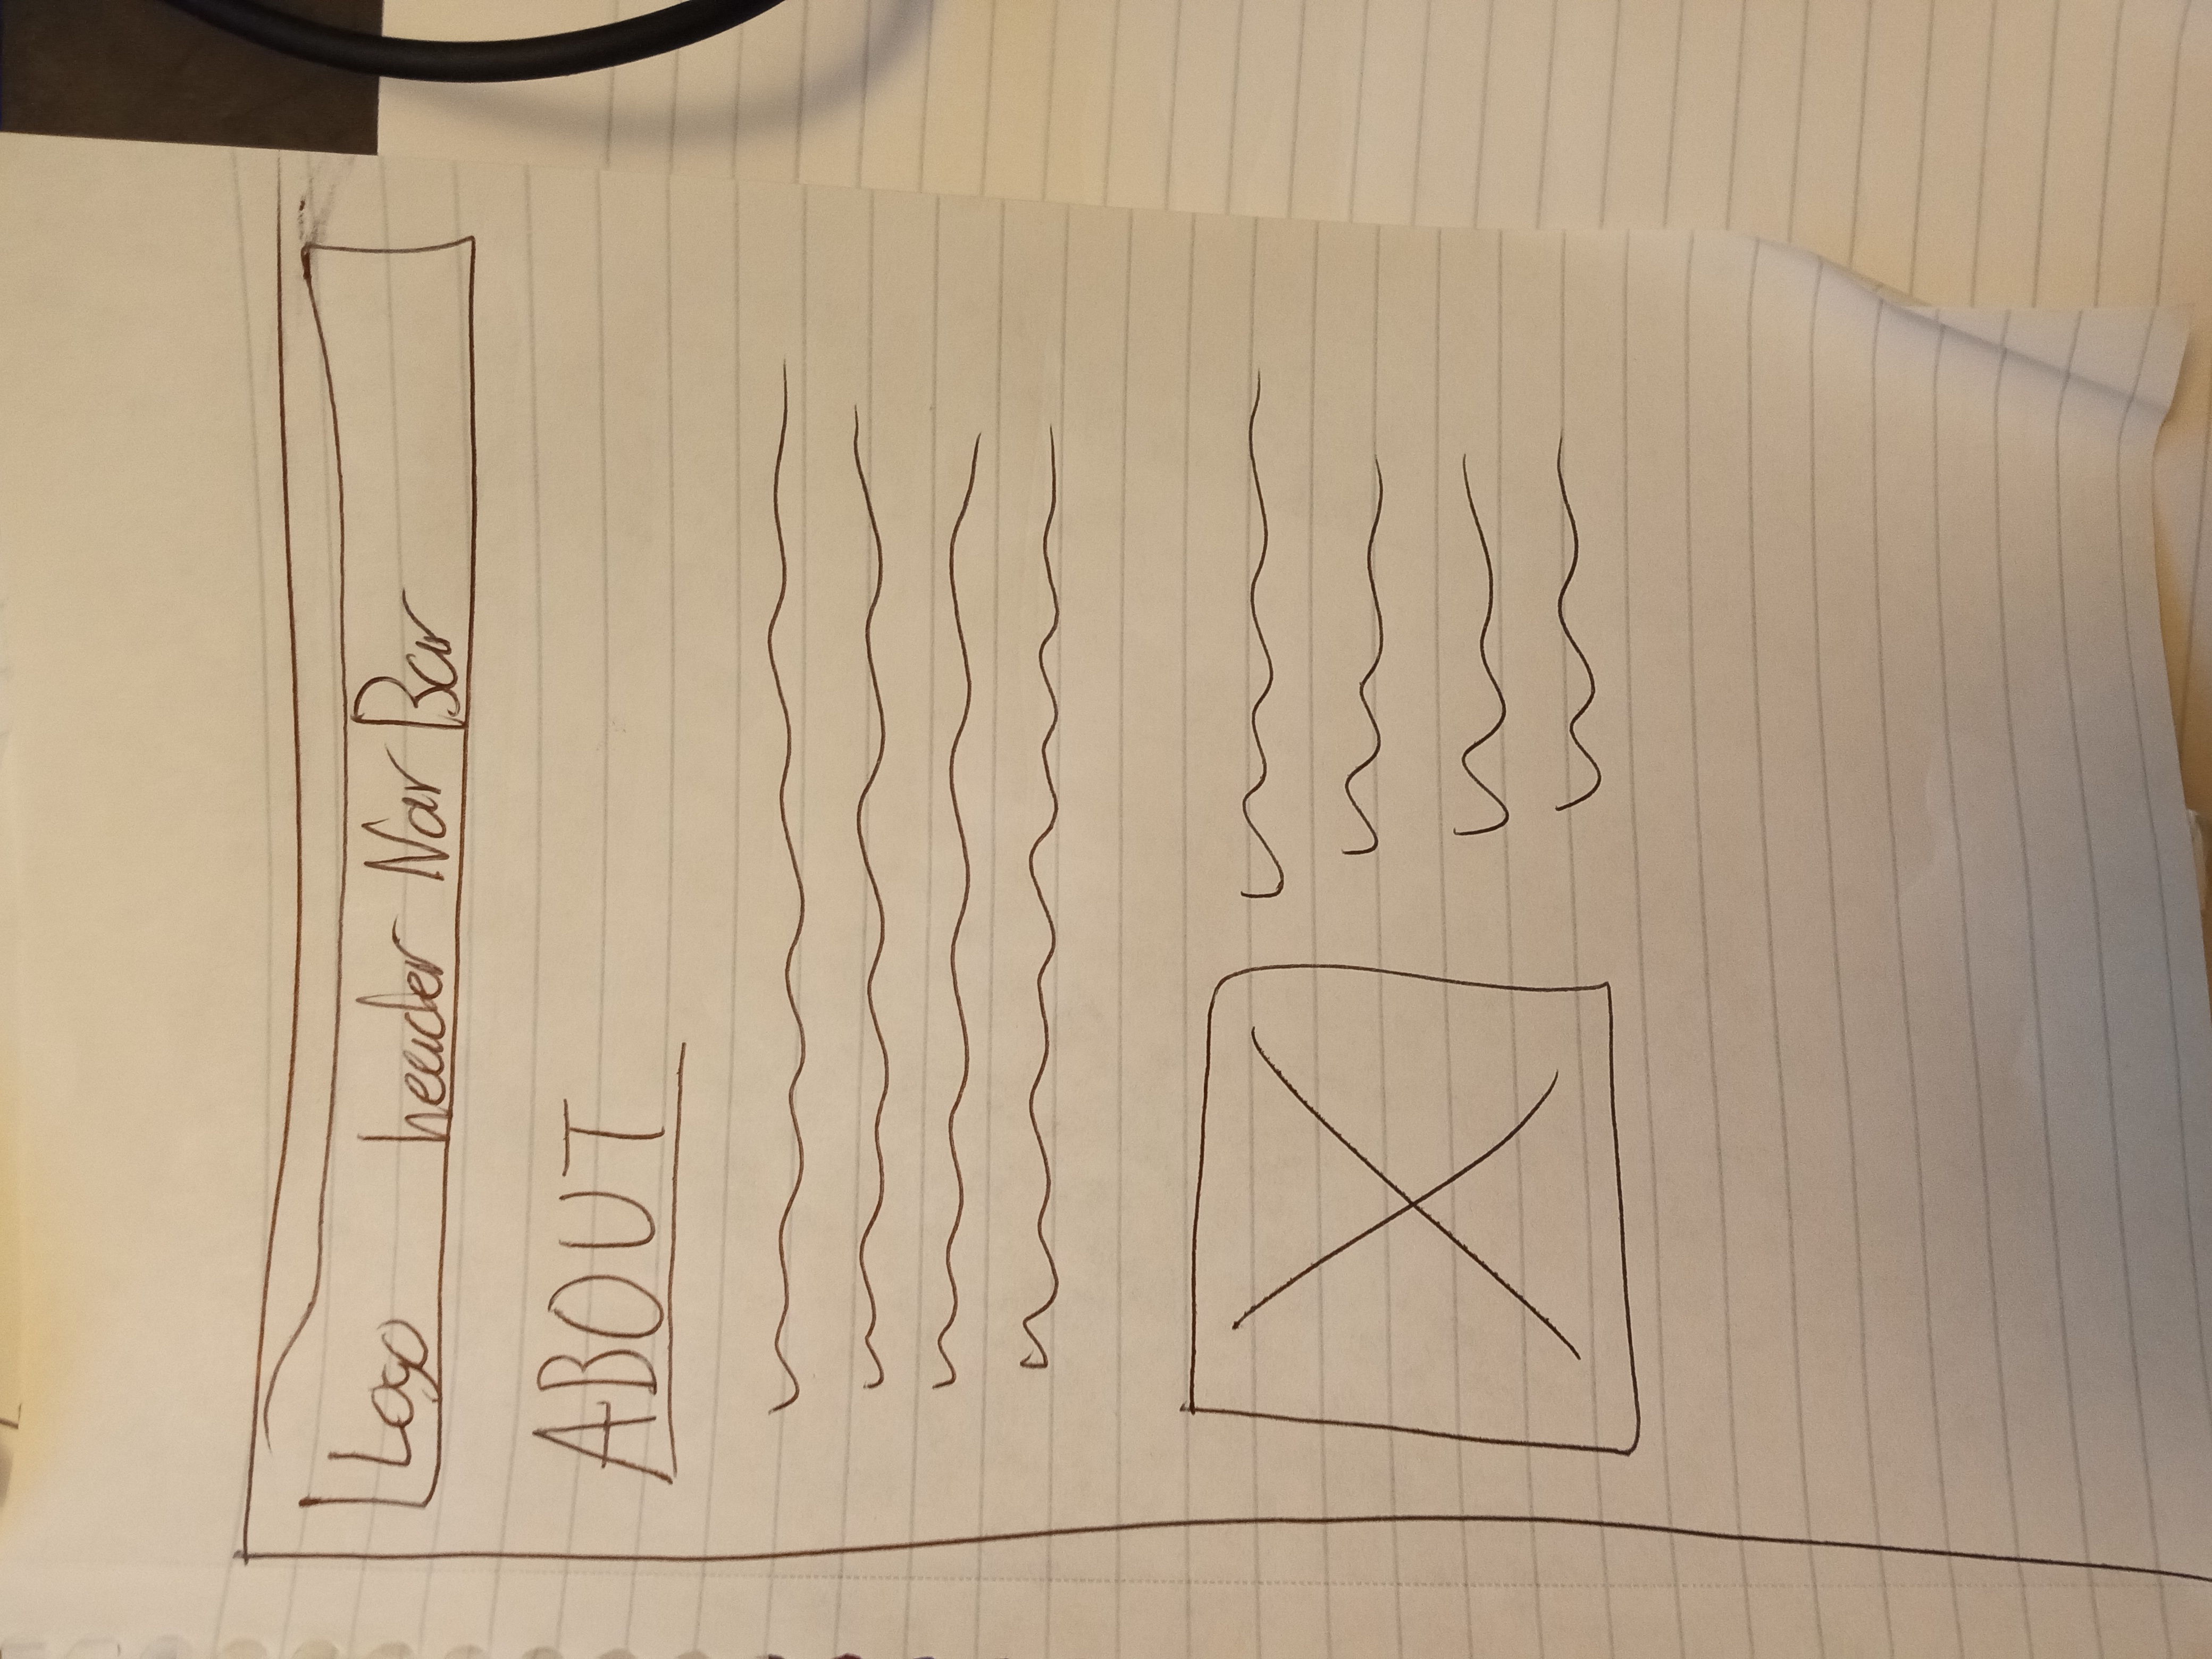 Logo header Nav Bar
ABOUT